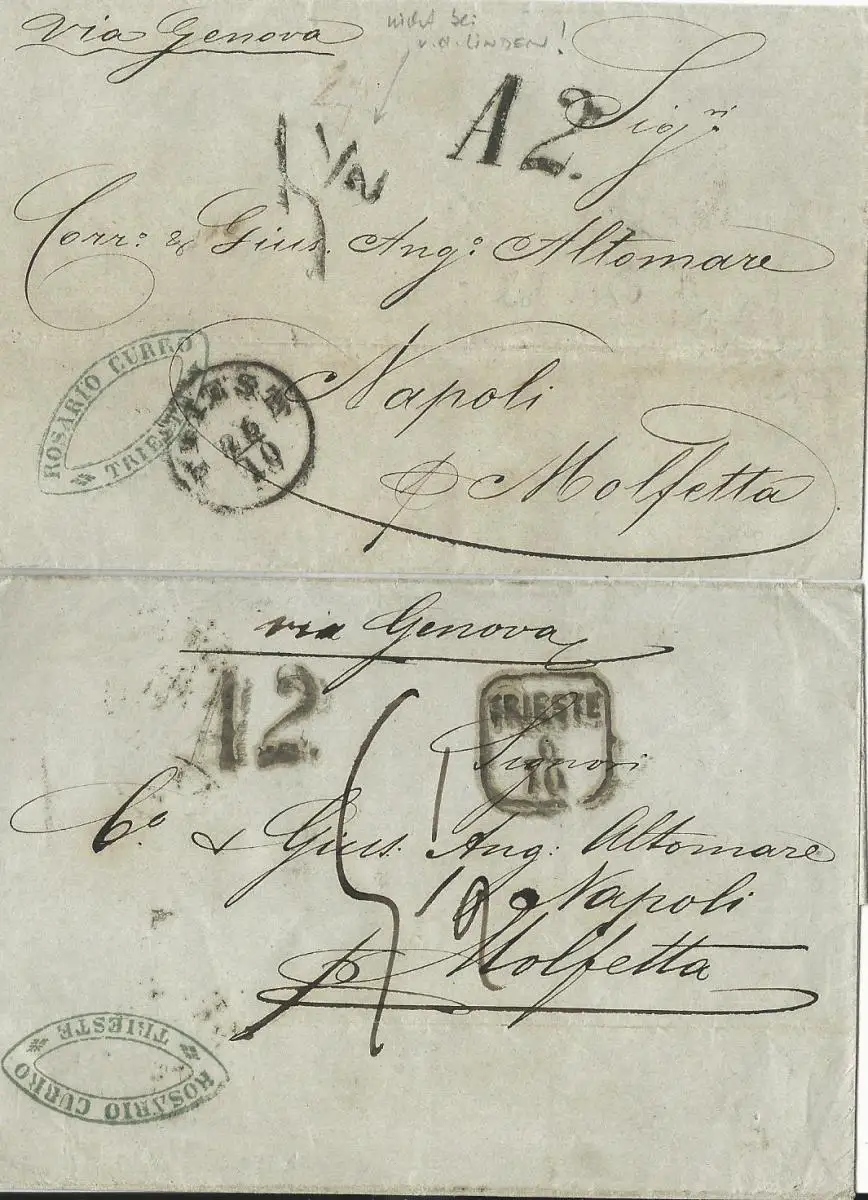 via Genova
nicht bei
v.d. LINDEN!
A 2.
Sig.ri
5 1/2
Corr.o & Gius. Ang.o Altomare
ROSARIO CURRO
TRIESTE
TRIEST
24
10
Napoli
p Molfetta
via Genova
A2.
TRIESTE
8
10
Signori
5 1/2
C.o & Gius. Ang: Altomare
Napoli
p Molfetta
TRIESTE
ROSARIO CURRO